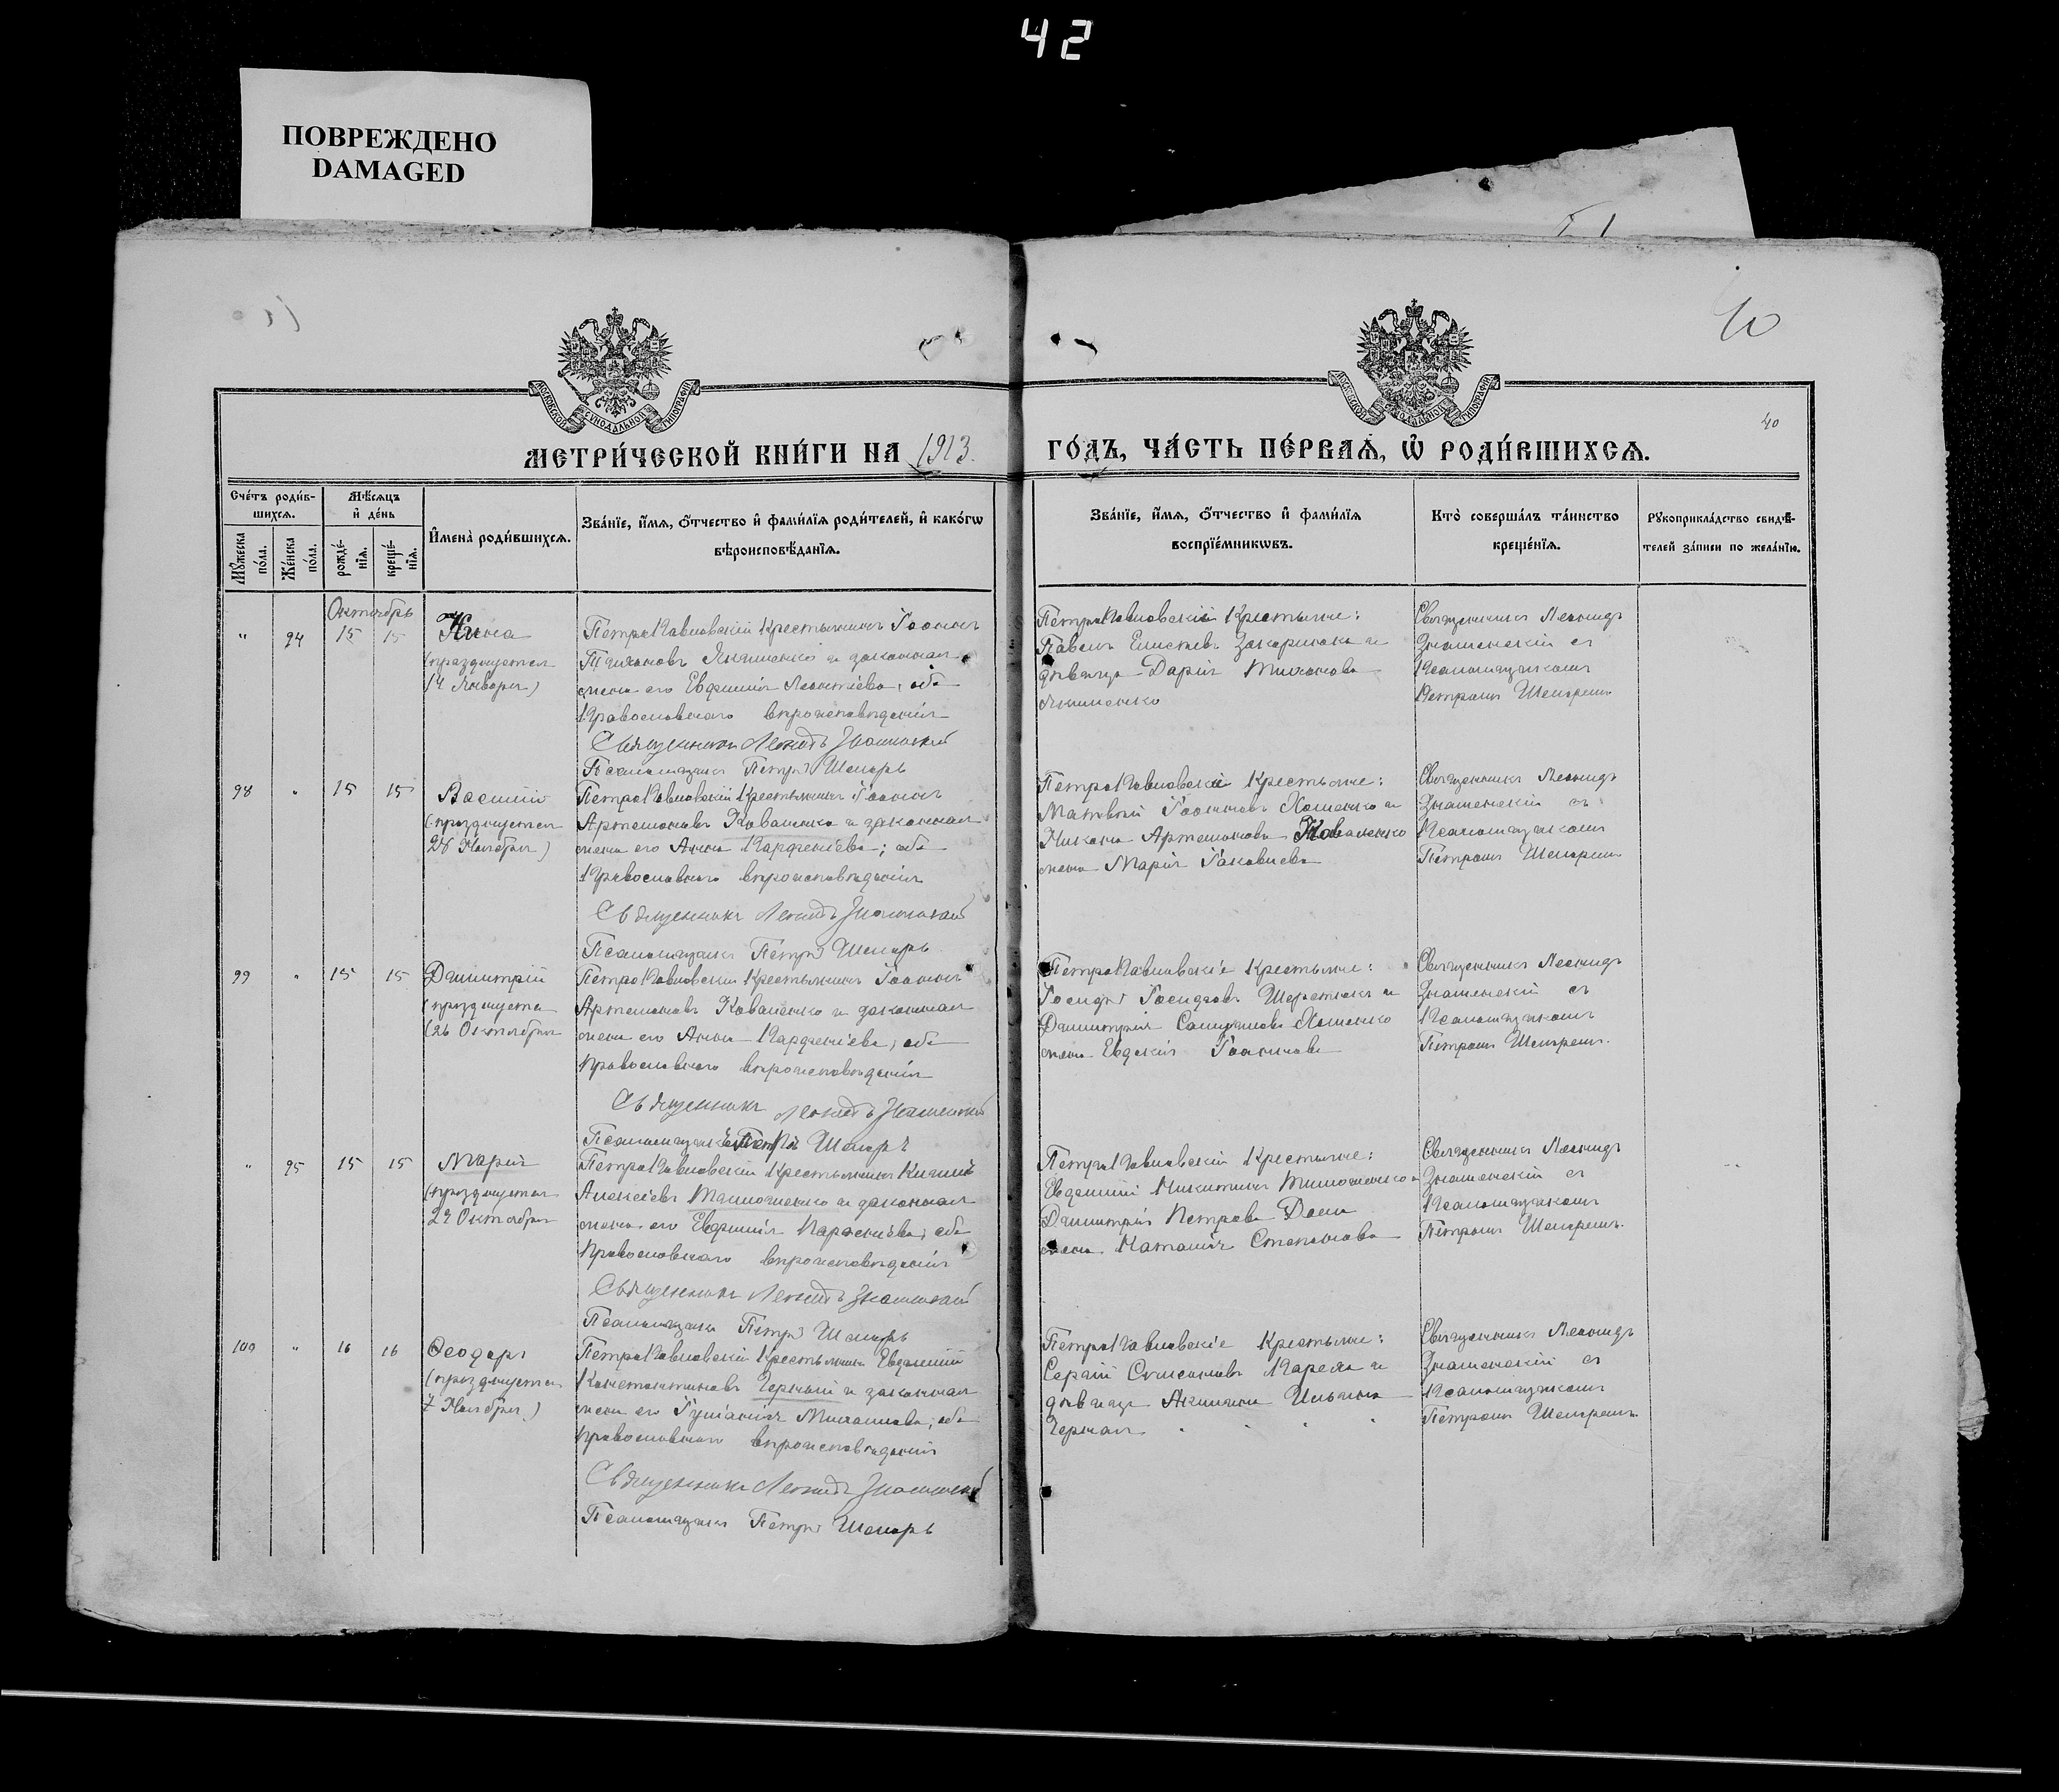 42
ПОВРЕЖДЕНО
DAMAGED
10
40
МОСКОВСКОЙ СѴНОДАЛЬНОЙ ТИПОГРАФІИ
МОСКОВСКОЙ СѴНОДАЛЬНОЙ ТИПОГРАФІИ
МЕТРИ́ЧЕСКОЙ КНИ́ГИ НА 1913. ГО́ДЪ, ЧА́СТЬ ПЕ́РВАѦ, Ѡ҆ РОДИ́ВШИХСѦ.
Сче́тъ роди́в-
шихсѧ.
Мꙋ́жеска по́ла.
Же́нска по́ла.
Мѣ́сѧцъ
и҆ де́нь
рожде́-нїѧ.
креще́-нїѧ.
И҆мена̀ роди́вшихсѧ.
Зва́нїе, и҆́мѧ, ѻ҆́тчество и҆ фами́лїѧ роди́телей, и҆ како́гѡ
вѣроисповѣ́данїѧ.
Зва́нїе, и҆́мѧ, ѻ҆́тчество и҆ фами́лїѧ
воспрїе́мникѡвъ.
Кто̀ соверша́лъ та́инство
креще́нїѧ.
Рꙋкоприкла́дство свидѣ́-
телей за́писи по жела́нїю.
Октябрь
" 94 15 15 Нина
(празднуется
14 Января)
ПетроПавловскій Крестьянинъ Іоаннъ
Тихоновъ Якименко и законная
жена его Евфимія Леонтіева, оба
Православнаго вѣроисповѣданія
Священникъ Леонидъ Знаменскій
Псаломщикъ Петръ Шепарь
ПетроПавловскій Крестьяне:
Павелъ Елисѣевъ и
дѣвица Дарія Тихонова
Якименко
Священникъ Леонидъ
Знаменскій съ
Псаломщикомъ
Петромъ Шепаремъ
98 " 15 15 Василій
(празднуется
28 Ноября)
ПетроПавловскій Крестьянинъ Іоаннъ
Артемоновъ Коваленко и законная
жена его Анна Парфеніева; оба
Православнаго вѣроисповѣданія
Священникъ Леонидъ Знаменскій
Псаломщикъ Петръ Шепарь
ПетроПавловскіе Крестьяне:
Матвѣй Іоанновъ Хоменко и
Никона Артемонова Коваленко
жена Марія Іаковлева
Священникъ Леонидъ
Знаменскій съ
Псаломщикомъ
Петромъ Шепаремъ
99 " 15 15 Димитрій
(празднуется
(26 Октября
ПетроПавловскій Крестьянинъ Іоаннъ
Артемоновъ Коваленко и законная
жена его Анна Парфеніева, оба
Православнаго вѣроисповѣданія
Священникъ Леонидъ Знаменскій
Псаломщикъ Петръ Шепарь
ПетроПавловскіе Крестьяне:
Іосифъ Іосифовъ и
Димитрія Хоменко
жена Евдокія Іоаннова
Священникъ Леонидъ
Знаменскій съ
Псаломщикомъ
Петромъ Шепаремъ.
" 95 15 15 Марія
(празднуется
29 Октября
ПетроПавловскій Крестьянинъ Кириллъ
Алексіевъ Тимошенко и законная
жена его Евфимія оба
Православнаго вѣроисповѣданія
Священникъ Леонидъ Знаменскій
Псаломщикъ Петръ Шепарь
ПетроПавловскій Крестьяне:
Евдокимъ Никитинъ Тимошенко и
Димитрія Петрова
жена Наталія Степанова
Священникъ Леонидъ
Знаменскій съ
Псаломщикомъ
Петромъ Шепаремъ.
100 " 16 16 Ѳеодоръ
(празднуется
7 Ноября)
ПетроПавловскій Крестьянинъ Евдокимъ
Константиновъ Черный и законная
жена его Іуліанія Михаилова, оба
Православнаго вѣроисповѣданія
Священникъ Леонидъ Знаменскій
Псаломщикъ Петръ Шепарь
ПетроПавловскіе Крестьяне:
Сергій и
дѣвица Акилина Ильина
Черная
Священникъ Леонидъ
Знаменскій съ
Псаломщикомъ
Петромъ Шепаремъ.